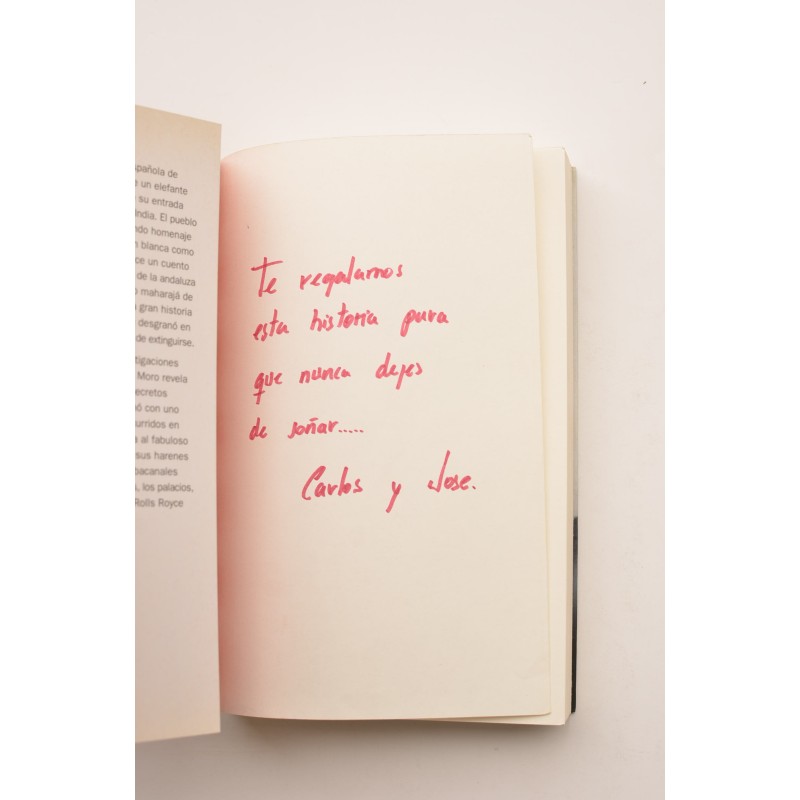 pañola de
un elefante
su entrada
India. El pueblo
ndo homenaje
n blanca como
ce un cuento
de la andaluza
maharajá de
gran historia
desgranó en
de extinguirse.
tigaciones
Moro revela
ecretos
ó con uno
urridos en
al fabuloso
sus harenes
bacanales
, los palacios,
Rolls Royce
Te regalamos
esta historia para
que nunca dejes
de soñar.....
Carlos y Jose.